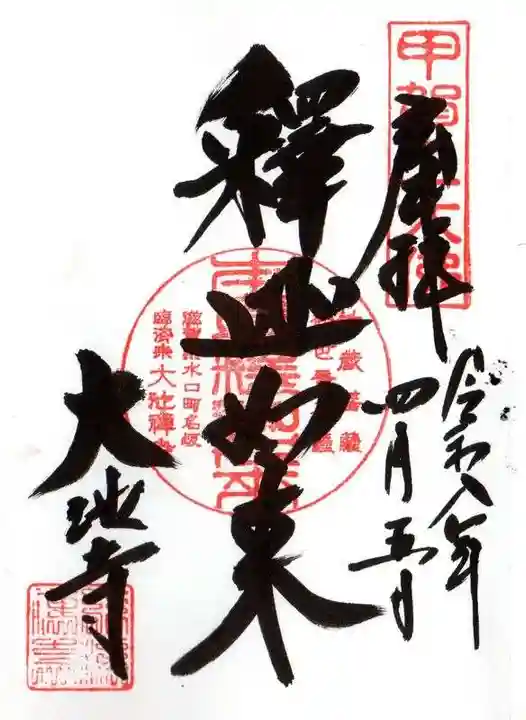 奉拝
令和八年
四月五日
釋迦如来
大池寺
甲賀三大佛
水口町名坂
臨済宗大池禅寺